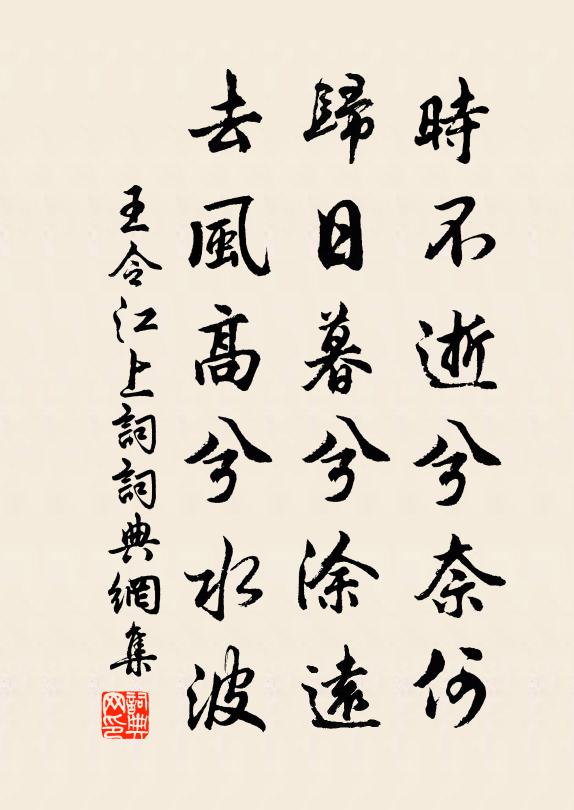 時不逝兮奈何
歸日暮兮涂遠
去風高兮水波
王令江上詞詞典網集
詞典网印